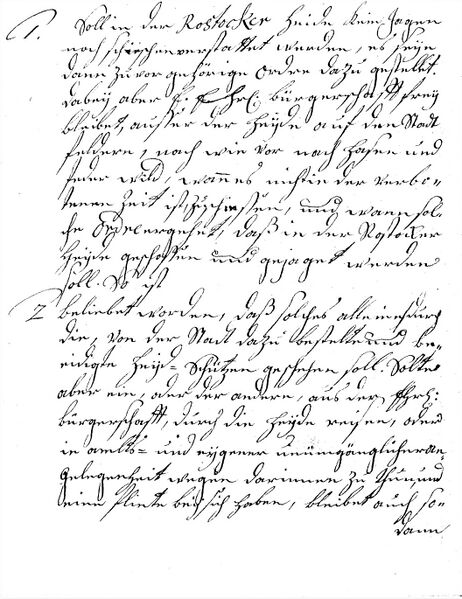 1. Soll in der Rostocker Heide kein Jagen
noch schiessen verstattet werden, es seye
dann zuvor gehörige Ordre dazu gestellet.
Dabey aber E. E. Ehrl: bürgerschafft frey
bleibet, ausser der Heyde auf den Stadt
feldern, nach wie vor nach Hasen und
feder wild, wann es nicht in der verbo-
tenen Zeit ist, zu schiessen, und wann sol-
che Ordre ergehet, daß in der Rostocker
Heyde geschossen und gejaget werden
soll. So ist
2 beliebet worden, daß solches alleine durch
die, von der Stadt dazu bestellte und be-
eidigte Heyd-Schützen geschehen soll. Solte
aber ein, oder der andere, aus der Ehrl:
bürgerschafft, durch die Heyde reisen, oder
in ambts- und eygener unümgänglicher an-
gelegenheit wegen darinnen zu thun, und
einen Flinte bey sich haben, bleibet auch so-
dann